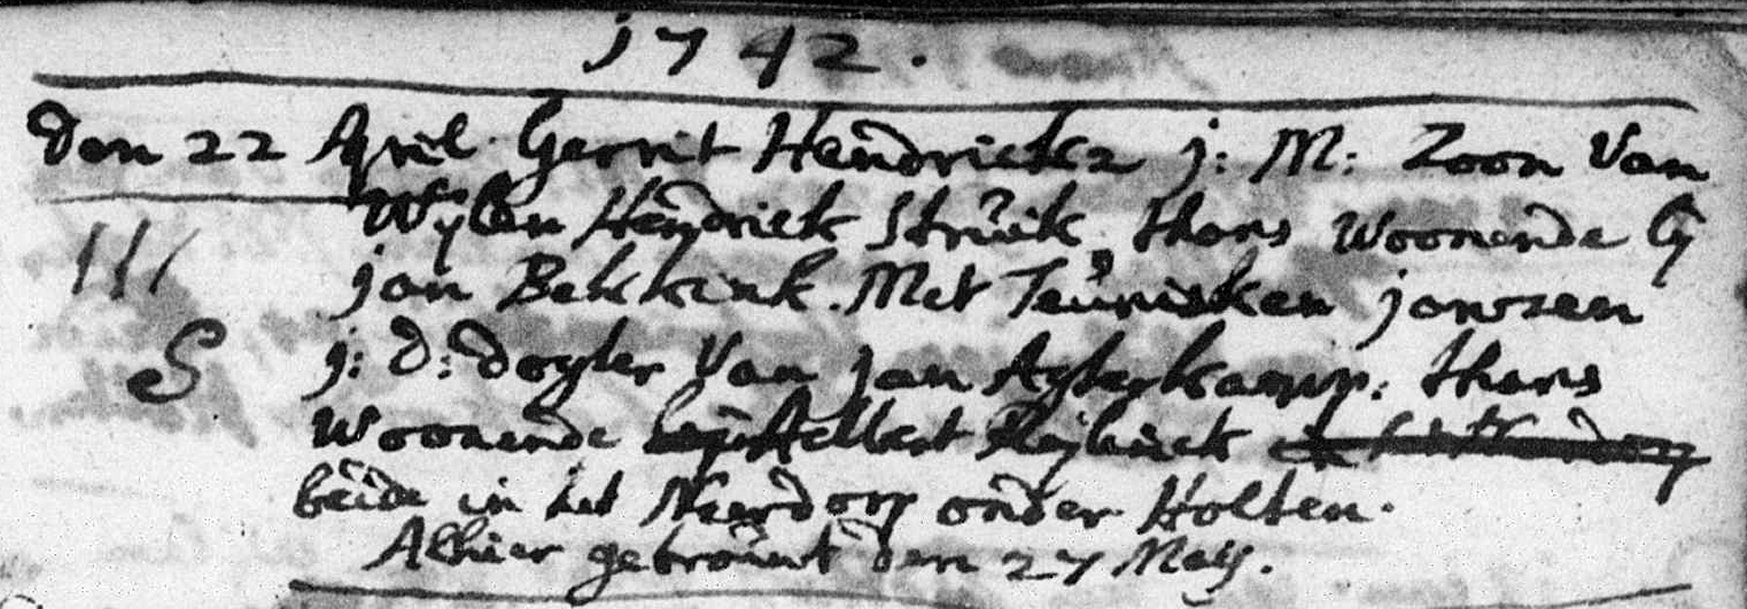 1742.
Den 22 April Gerrit Hendricks j: M: Zoon Van
Wijlen Hendrick Strûik, thans Woonende bij
jan Bekkink. Met Teûnisken janszen
j: D: dogter Van Jan Agterkamp: thans
Woonende bij Aelbert in het Neerdorp
beide in het Neerdorp onder Holten.
Alhier getroûwt den 27 Meij.
111
S